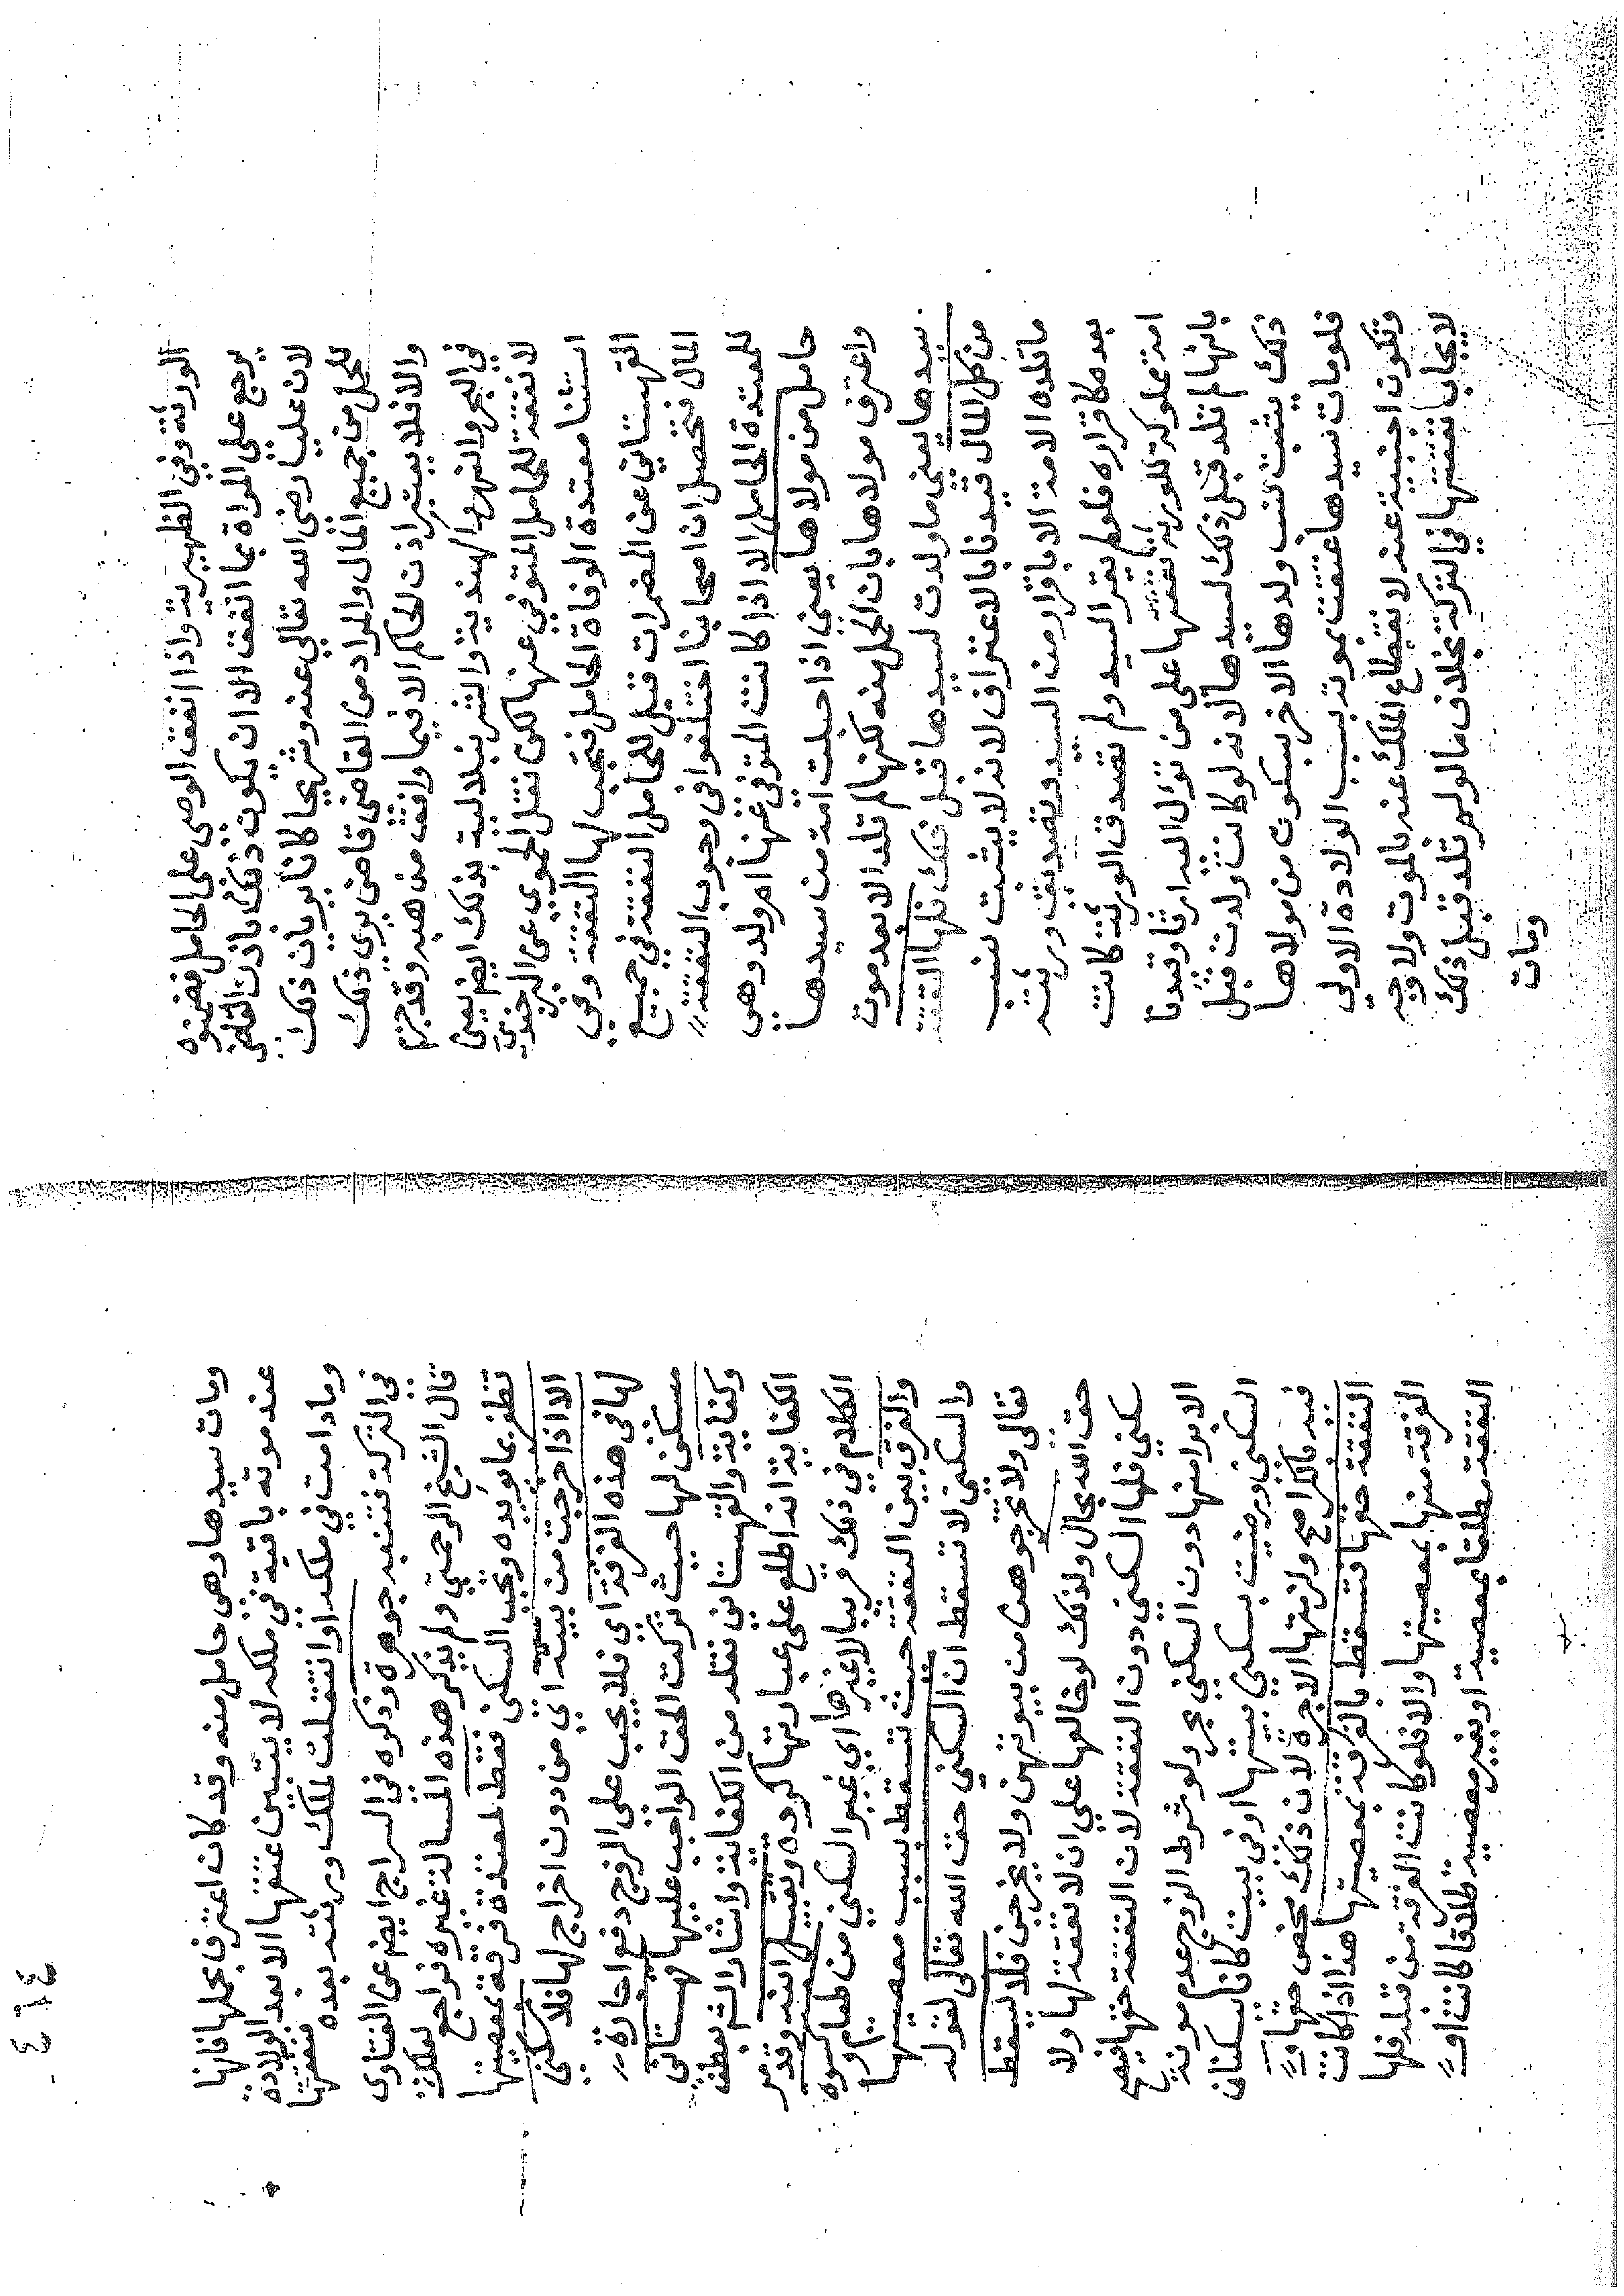 الورثة وفي الظهيرية واذا انفق الوصي على الحامل ضمنوه
يرجع على المراة بما انفق الا ان يكون ذلك باذن القاضي
لان عليا رضي الله تعالى عنه وشريحا كانا يريان ذلك
للحمل من جميع المال والمراد من القاضي قاض يرى ذلك
والا فلا يعتبر اذن الحاكم الا فيما وافق مذهبه وقد جزم
في البحر والنهر والهندية والشرنبلالية بذلك ايضم يعني
لا نفقة للحامل المتوفي عنها لكن نقل الحموي عن البرجندي
استثنا معتدة الوفاة الحامل فتجب لها النفقة وفي
القهستاني عن المضمرات قيل للحامل النفقة في جميع
المال فتحصل ان اصحابنا اختلفوا في وجوب النفقة
للمعتدة الحامل الا اذا كانت المتوفى عنها ام ولد وهي
حامل من مولاها يعني اذا حبلت امة من سيدها
واعترف مولاها بان الحمل منه لكنها لم تلد الا بعد موت
سيدها يعني ما ولدت لسيدها قبل ذلك فلها النفقة
من كل المال قيدنا بالاعتراف لانه لا يثبت نسب
ما تلده الامة الا باقرار من السيد وتصديق ورثته
بعده كاقراره فلو لم يقر السيد ولم تصدق الورثة كانت
امة مملوكة للورثة نفقتها على من تؤل اليه ارثا وقيدنا
بانها لم تلد قبل ذلك لسيدها لانه لو كانت ولدت قبل
ذلك يثبت نسب ولدها الاخر بسكوت من مولاها
فلو مات سيدها عتقت بموته بسبب الولادة الاولى
وتكون اجنبية عنه لانقطاع الملك عنه بالموت ولا وجه
لايجاب نفقتها في التركة بخلاف ما لو لم تلد قبل ذلك
ومات
٤١٤
ومات سيدها وهي حامل منه وقد كان اعترف بحملها فانها
عند موته باقية في ملكه لا يتبين عتقها الا بعد الولادة
وما دامت في ملكه او انتقلت لملك ورثته بعده فنفقتها
في التركة فتنبه جوهرة وذكره في السراج ايضم عن الفتاوى
قال الشيخ الرحمتي ولم يذكر هذه المسالة غيره فراجع لعلك
تظفر بما يؤيده وتجب السكنى فقط لمعتدة فرقة بمعصيتها
الا اذا خرجت من بيته اي من دون اخراج لها فلا سكنى
لها في هذه الفرقة اي فلا يجب على الزوج دفع اجارة
مسكن لها حيث تركت الحق الواجب عليها قهستاني
وكفاية والقهستاني نقله من الكفاية واشار الشم بعطف
الكفاية انه اطلع على عبارتها كرده وتقييل انه وقد مر
الكلام في ذلك قريبا لا غيرها اي غير السكنى من طعام وكسوة
والفرق بين النفقة حيث تسقط بسبب معصيتها
والسكنى لا تسقط ان السكنى حق الله تعالى لقوله
تعالى ولا تخرجوهن من بيوتهن ولا يخرجن فلا يسقط
حق الله بحال ولذلك لو خالعها على ان لا نفقة لها ولا
سكنى فلها السكنى دون النفقة لان النفقة حقها فيصح
الابرا منها دون السكنى بحر ولو شرط الزوج عدم مونة
السكنى ورضيت بسكنى بيتها او في بيت كانا يسكنانه
فيه بالكرا صح ولزمتها الاجرة لان ذلك محض حقها و
النفقة حقها فتسقط بالفرقة بمعصيتها هذا اذا كانت
الفرقة منها بمعصيتها والا فلو كانت الفرقة من قبله فلها
النفقة مطلقا بمعصية او بغير معصية طلاقا كانت او